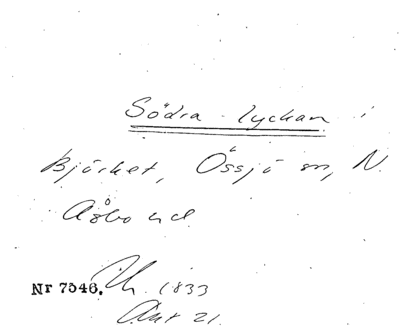 Södra lyckan i
Björket, Össjö sn, N.
Åsbo hd
Nr 7546. 1833
Akt 21.